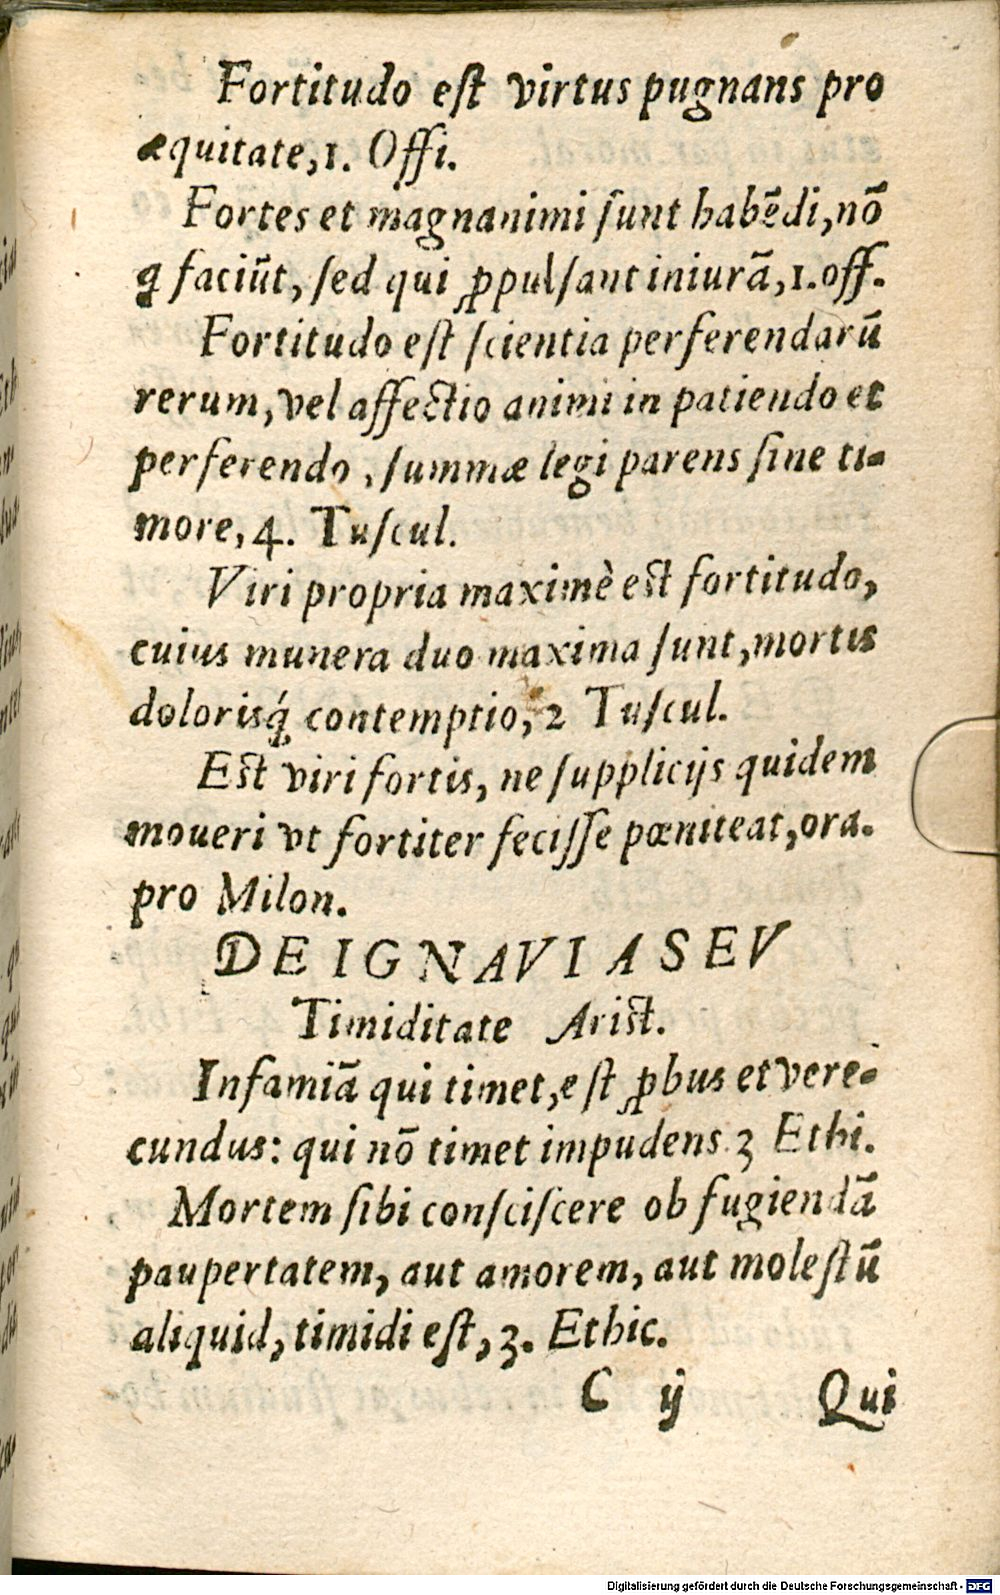 Fortitudo eſt virtus pugnans pro
æquitate,1. Offi.
Fortes et magnanimi ſunt habẽdi,nõ
q̃ faciũt, ſed qui ꝓpulſant iniurã,1.off.
Fortitudo eſt ſcientia perferendarũ
rerum,vel affectio animi in patiendo et
perferendo , ſummæ legi parens ſine ti-
more,4. Tuſcul.
Viri propria maximè est fortitudo,
cuius munera duo maxima ſunt,mortis
dolorisq́; contemptio, 2 Tuſcul.
Est viri fortis, ne ſupplicijs quidem
moueri vt fortiter feciſſe pœniteat,ora.
pro Milon.
DE IGNAVIA SEV
Timiditate Arist.
Infamiã qui timet,eſt ꝓbus et vere-
cundus: qui nõ timet impudens 3 Ethi.
Mortem ſibi conſciſcere ob fugiendã
paupertatem, aut amorem, aut moleſtũ
aliquid, timidi eſt,3. Ethic.
C ij Qui
Digitalisierung gefördert durch die Deutsche Forschungsgemeinschaft - DFG